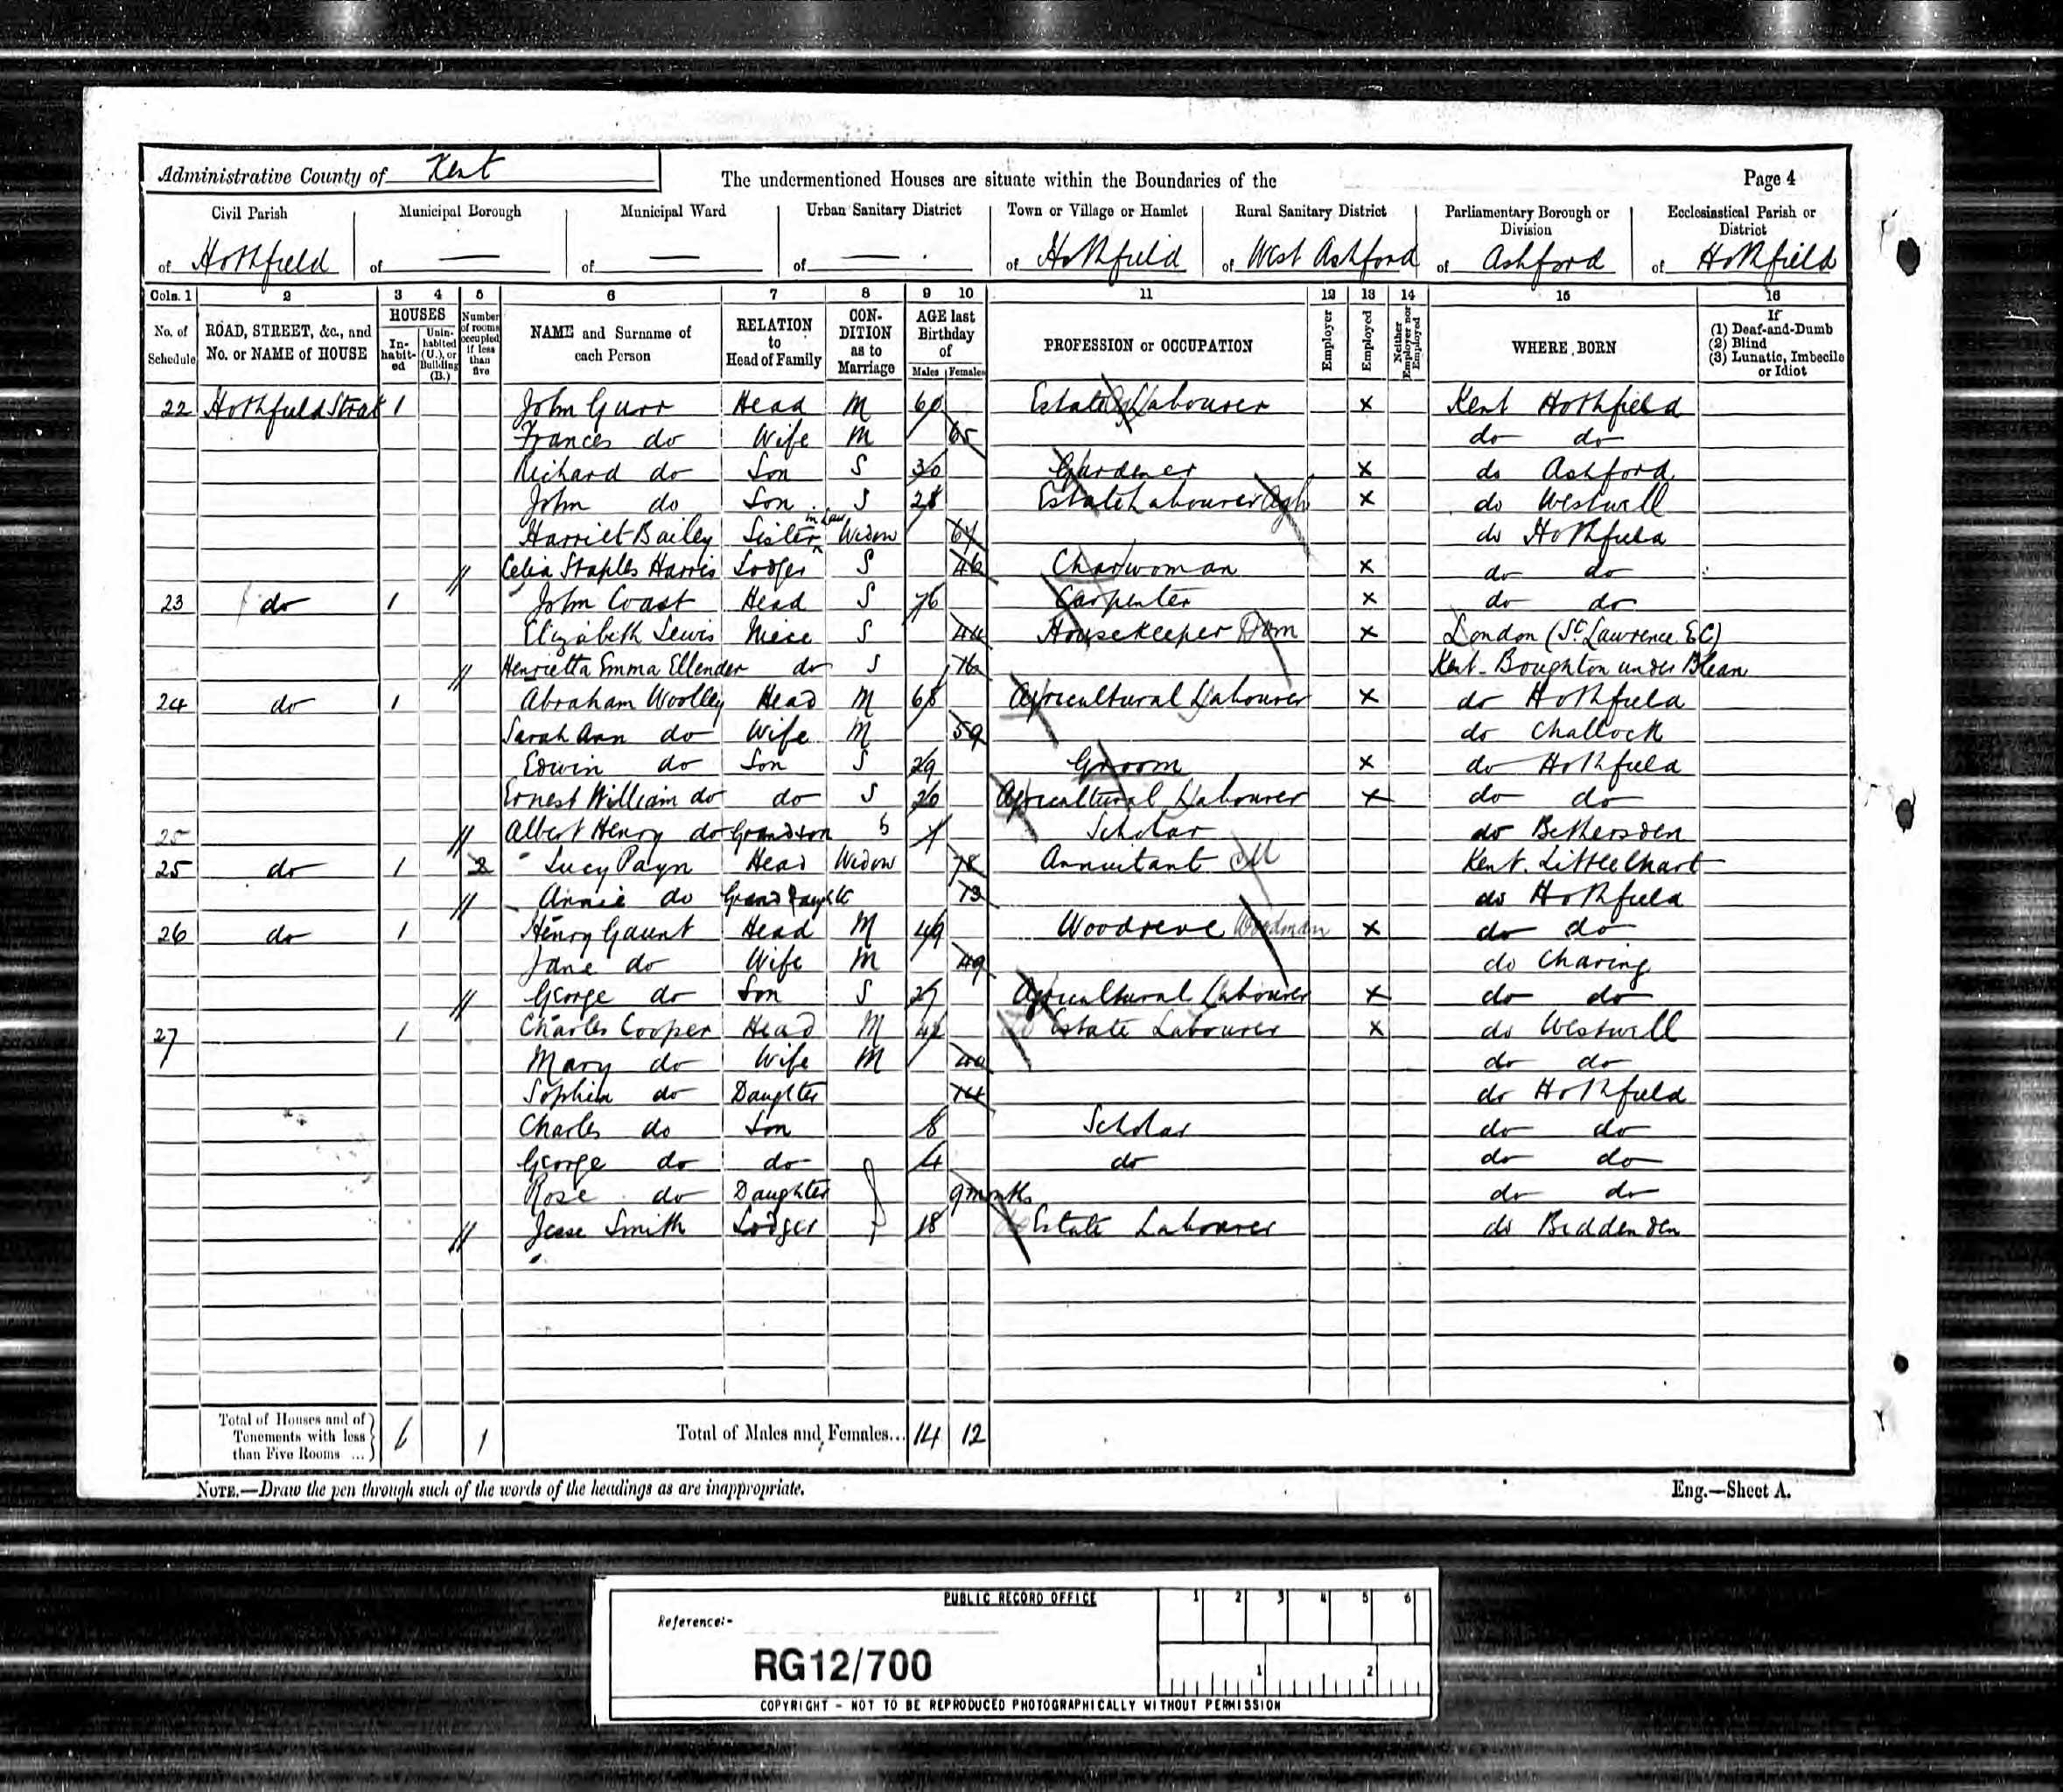 Administrative County of Kent
The undermentioned Houses are situate within the Boundaries of the
Page 4
Civil Parish of Hothfield
Municipal Borough of —
Municipal Ward of —
Urban Sanitary District of —
Town or Village or Hamlet of Hothfield
Rural Sanitary District of West Ashford
Parliamentary Borough or Division of Ashford
Ecclesiastical Parish or District of Hothfield
Cols. 1 2 3 4 5 6 7 8 9 10 11 12 13 14 15 16
No. of Schedule
ROAD, STREET, &c., and No. or NAME of HOUSE
HOUSES
In-habit-ed
Unin-habited (U.), or Building (B.)
Number of rooms occupied if less than five
NAME and Surname of each Person
RELATION to Head of Family
CON-DITION as to Marriage
AGE last Birthday of
Males Females
PROFESSION or OCCUPATION
Employer
Employed
Neither Employer nor Employed
WHERE BORN
If (1) Deaf-and-Dumb (2) Blind (3) Lunatic, Imbecile or Idiot
22 Hothfield Street 1 John Gurr Head M 60 Estate Labourer x Kent Hothfield
Frances do Wife M 65 do do
Richard do Son S 30 Gardener x do Ashford
John do Son S 28 Estate Labourer x do Westwell
Harriet Bailey Sister in Law Widow do Hothfield
Celia Staples Harris Lodger S 46 Charwoman x do do
23 do 1 John Coast Head S 76 Carpenter x do do
Elizabeth Lewis Niece S 44 Housekeeper Dom x London (St Lawrence EC)
Henrietta Emma Ellender do S 16 Kent Boughton under Blean
24 do 1 Abraham Woolley Head M 68 Agricultural Labourer x do Hothfield
Sarah Ann do Wife M 59 do Challock
Edwin do Son S 29 Groom x do Hothfield
Ernest William do do S 20 Agricultural Labourer x do do
25 Albert Henry do Grandson S Scholar do Bethersden
25 do 1 2 Lucy Payn Head Widow 78 Annuitant Kent. Little Chart
Annie do Grand Daughter 13 do Hothfield
26 do 1 Henry Gaunt Head M 49 Woodreve Woodman x do do
Jane do Wife M 49 do Charing
George do Son S 27 Agricultural Labourer x do do
27 1 Charles Cooper Head M 42 Estate Labourer x do Westwell
Mary do Wife M 40 do do
Sophia do Daughter 14 do Hothfield
Charles do Son 8 Scholar do do
George do do 4 do do do
Rose do Daughter 9 months do do
Jesse Smith Lodger 18 Estate Labourer do Biddenden
Total of Houses and of Tenements with less than Five Rooms ... 6 1
Total of Males and Females... 14 12
NOTE.—Draw the pen through such of the words of the headings as are inappropriate.
Eng.—Sheet A.
PUBLIC RECORD OFFICE
1 2 3 4 5 6
Reference:-
RG12/700
1 2
COPYRIGHT - NOT TO BE REPRODUCED PHOTOGRAPHICALLY WITHOUT PERMISSION